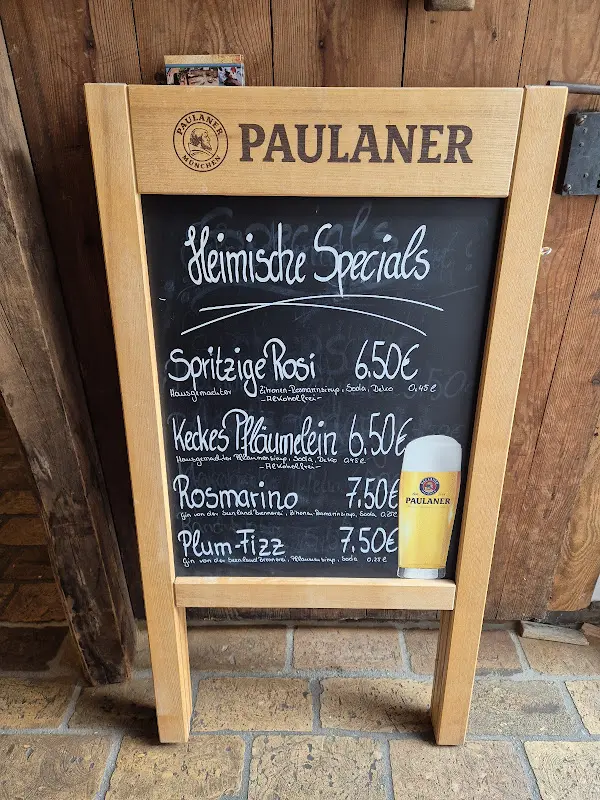 PAULANER
MÜNCHEN
PAULANER
Heimische Specials
Spritzige Rosi 6,50€
Hausgemachter Zitronen-Rosmarinsirup, Soda, Deko 0,45l
-Alkoholfrei-
Keckes Pfläumelein 6,50€
Hausgemachter Pflaumensirup, Soda, Deko 0,45l
-Alkoholfrei-
Rosmarino 7,50€
Gin von der Brennerei, Zitronen-Rosmarinsirup, Soda 0,25l
Plum-Fizz 7,50€
Gin von der Brennerei, Pflaumensirup, Soda 0,25l
PAULANER